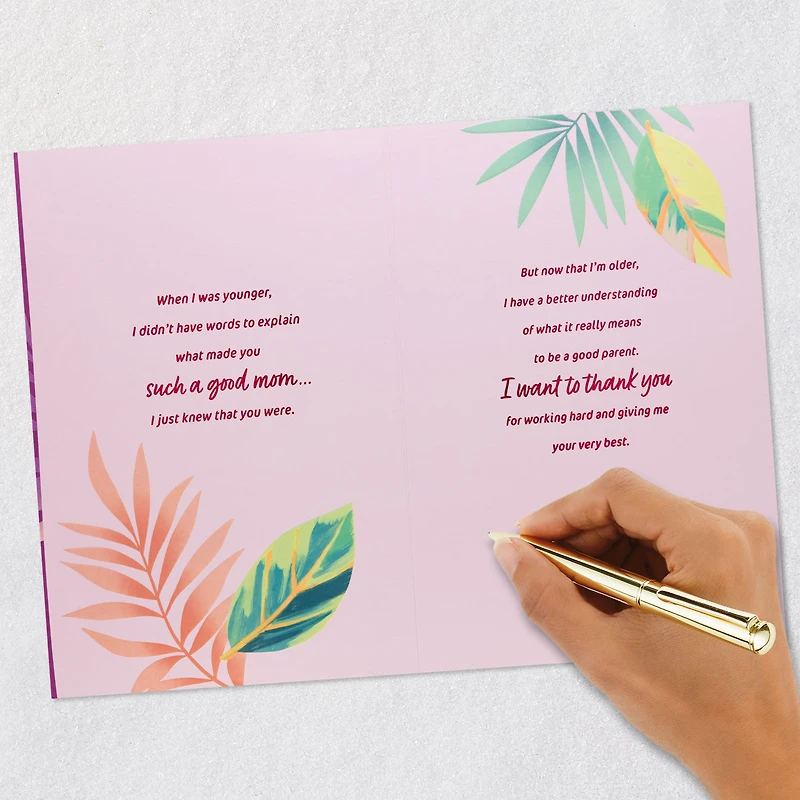 When I was younger,
I didn't have words to explain
what made you
such a good mom...
I just knew that you were.
But now that I'm older,
I have a better understanding
of what it really means
to be a good parent.
I want to thank you
for working hard and giving me
your very best.